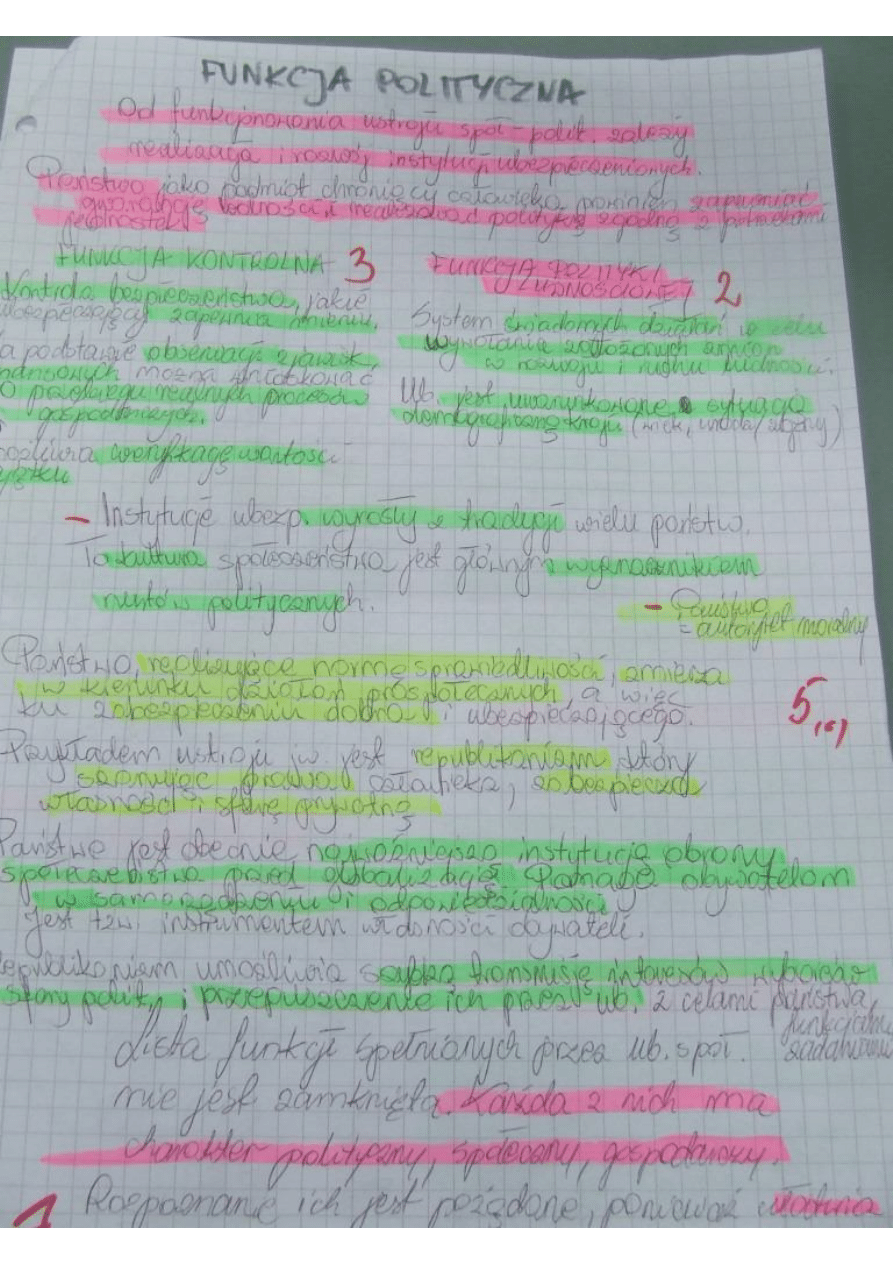 FUNKCJA POLITYCZNA
Od funkcjonowania ustroju społ-polit. zależy
realizacja i rozwój instytucji ubezpieczeniowych.
Państwo jako podmiot chroniący człowieka powinien zapewniać
gwarancję wolności i realizować politykę zgodną z potrzebami
jednostek
FUNKCJA KONTROLNA 3
Kontrola bezpieczeństwa, jakie
ubezpieczający zapewnia mieniu.
a podstawie obserwacji zjawisk
finansowych można wnioskować
o przebiegu realnych procesów
gospodarczych.
weryfikację wartości
FUNKCJA POLITYKI
LUDNOŚCIOWEJ 2
System świadomych działań w celu
wywołania założonych zmian
w rozwoju i ruchu ludności.
Ub. jest uwarunkowane sytuacją
demograficzną kraju (wiek, uroda/ zgony)
- Instytucje ubezp. wyrosły z tradycji wielu państw.
Ta kultura społeczeństwa jest głównym wyznacznikiem
nurtów politycznych.
- Państwo
= autorytet moralny
Państwo, realizujące normę sprawiedliwości, zmierza
w kierunku działań prospołecznych, a więc
ku zabezpieczeniu dobra i ubezpieczającego.
5,(c)
Przykładem ustroju jw. jest republikanizm, który
szanując prawa człowieka, zabezpiecza
własność i sferę prywatną
Państwo jest obecnie najważniejszą instytucją obrony
społeczeństwa przed globalizacją. Pomaga obywatelom
w samorządzeniu i odpowiedzialności
Jest tzw. instrumentem wolności obywateli.
epublikanizm umożliwia szybką transmisję interesów wyborców
sfery polity. i przepuszczenie ich przez ub. z celami państwa
funkcjami
zadaniami
Lista funkcji spełnianych przez ub. społ.
nie jest zamknięta. Każda z nich ma
charakter polityczny, społeczny, gospodarczy.
1 Rozpoznanie ich jest pożądane, ponieważ ułatwia